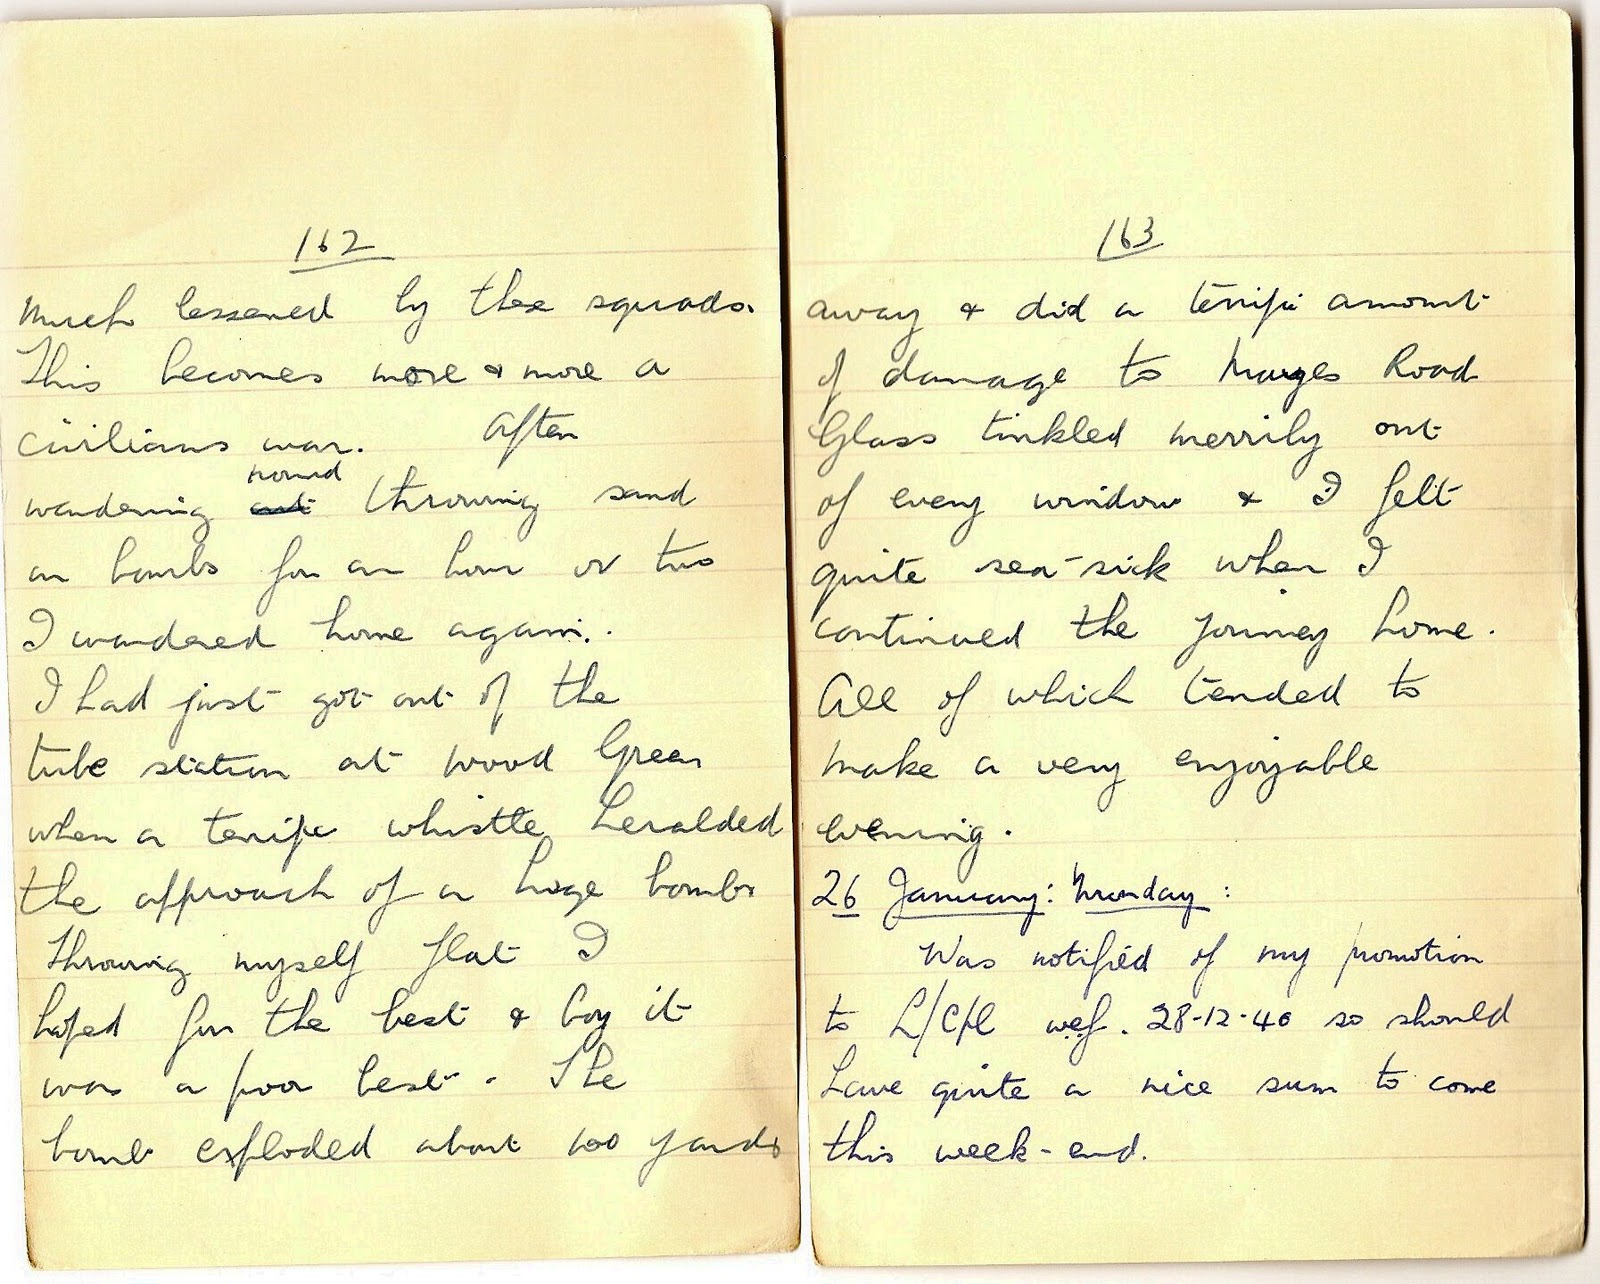 162
much lessened by these squads.
This becomes more & more a
civilians war. After
round
wandering out throwing sand
on bombs for an hour or two
I wandered home again.
I had just got out of the
tube station at Wood Green
when a terrific whistle heralded
the approach of a huge bomb
Throwing myself flat I
hoped for the best & boy it
was a poor best. The
bomb exploded about 100 yards
163
away & did a terrific amount
of damage to Road
Glass tinkled merrily out
of every window & I felt
quite sea-sick when I
continued the journey home.
All of which tended to
make a very enjoyable
evening.
26 January: Monday:
Was notified of my promotion
to L/Cpl wef. 28-12-40 so should
have quite a nice sum to come
this week-end.